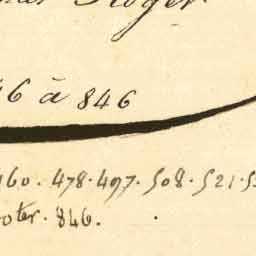 Roger
46 à 846
460. 478. 497. 508. 521. 5
oter. 846.